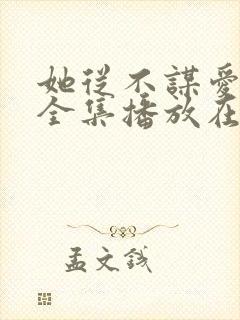 她從不謀愛
全集播放在
孟文錢